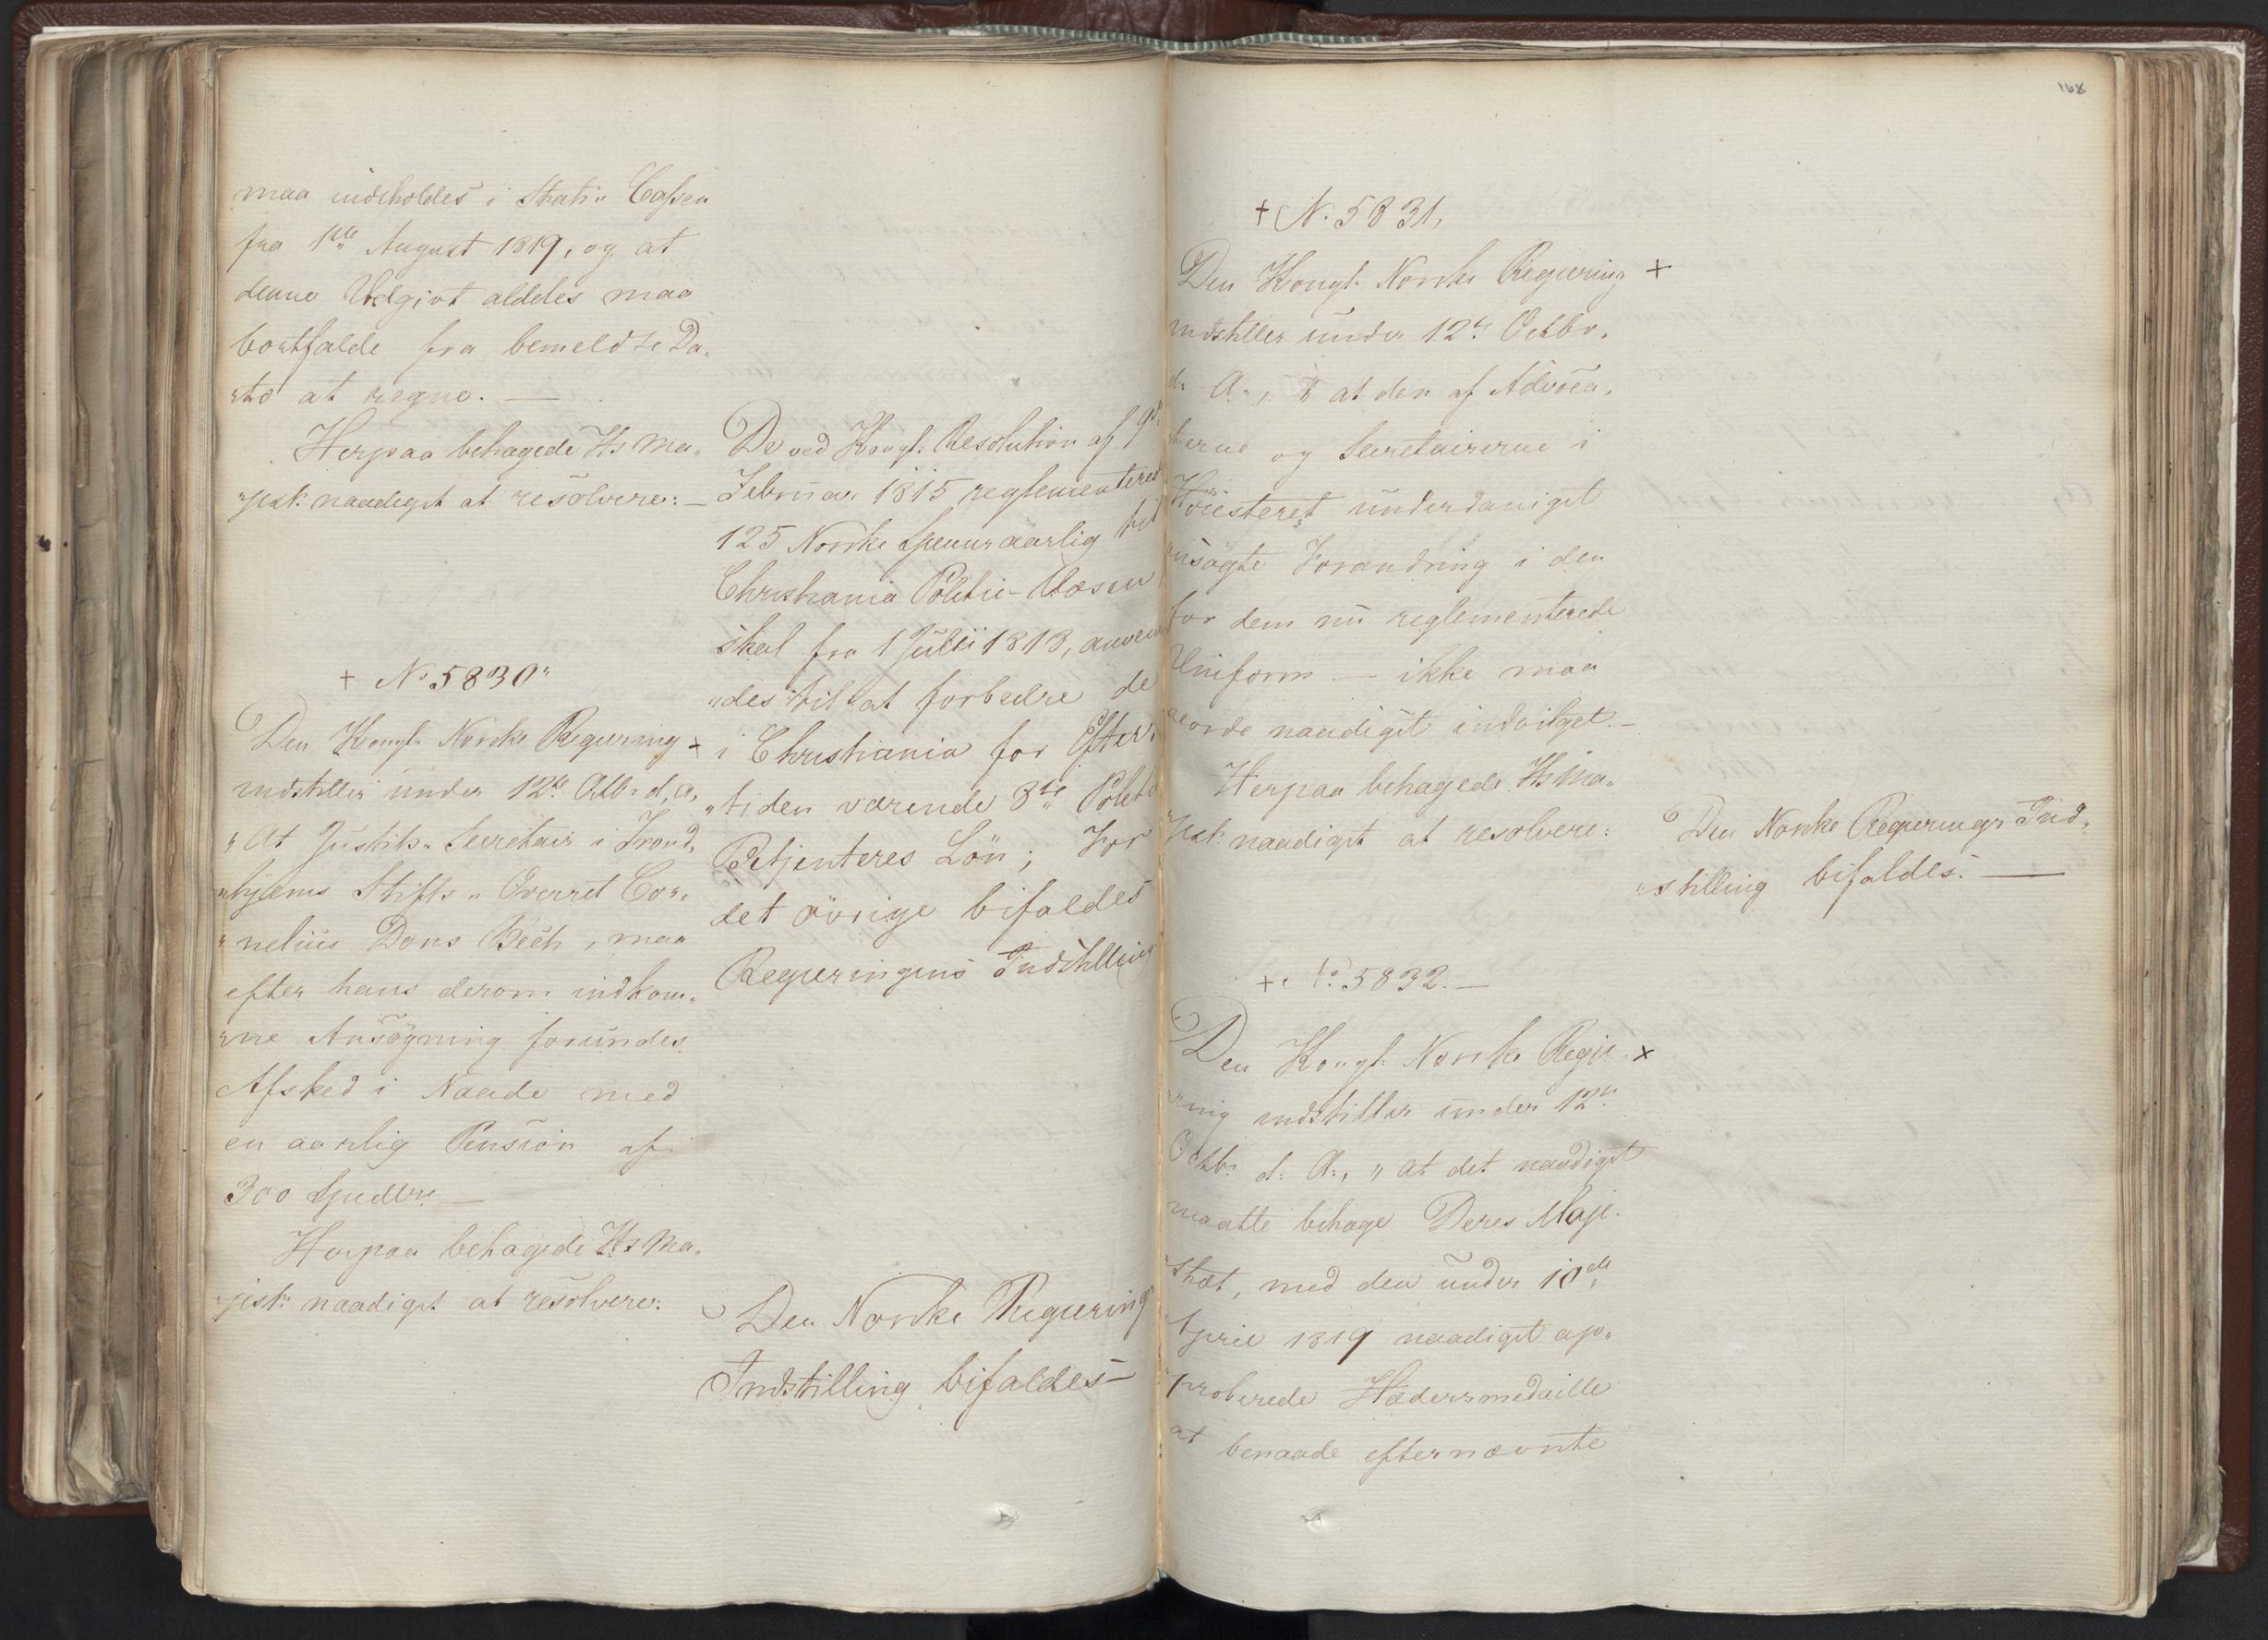 maa indeholdes i Stats„ Cassen
fra 1ste August 1819, og at
denne Udgivt aldeles maa
bortfalde fra bemeldte Da„
„to at regne. —
Herpaa behagede Hs Ma„
„jest: naadigst at resolvere: —
De ved Kongl: Resolution af
Februar 1815 reglementerede
125 Norske Speciers aarlig til
Christiania Politie-Væsen
skal fra 1 Julii 1818, anven
„des til at forbedre de
i Christiania for Efter„
„tiden værende 3de Politie
Betjenteres Lön; For
det övrige bifaldes
Regjeringens Indstilling
+ No 5830„
Den Kongl. Norske Regjering +
indstiller under 12te Octbr. d. A.
„At Justits„ Secretair i Trond„
„hjems Stifts„ Overret Cor„
„nelius Dons Bech, maa
efter hans derom indkom„
„ne Ansögning forundes
Afsked i Naade med
en aarlig Pension af
300 Specidlre. —
Herpaa behagede Hs Ma„
„jest: naadigst at resolvere:
Den Norske Regjerings
Indstilling bifaldes —
168
+ N. 5831,
Den Kongl. Norske Regjering +
indstiller under 12te Octbr.
d. A., „ at den af Advoca„
terne og Secretairerne i
Höiesteret underdanigst
ansögte Forandring i den
for dem nu reglementerede
Uniform — ikke maa
vorde naadigst indvilget. —
Herpaa behagede Hs Ma„
„jest: naadigst at resolvere:
Den Norske Regjerings Ind„
„stilling bifaldes. —
+ No. 5832. —
Den Kongl: Norske Regje +
ring indstiller under 12te
Octbr. d: A:, „ at det naadigst
maatte behage Deres Maje
stæt, med den under 10de
April 1819 naadigst ap„
„proberede Hædersmedaille
at benaade efternævnte